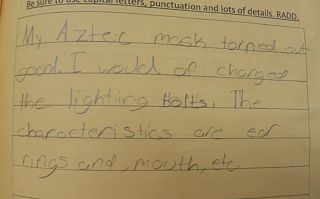 Be sure to use capital letters, punctuation and lots of details. RADD.
My Aztec mask torned out
good. I would of changed
the lighting bolts. The
characteristics are ear
rings and, mouth, etc